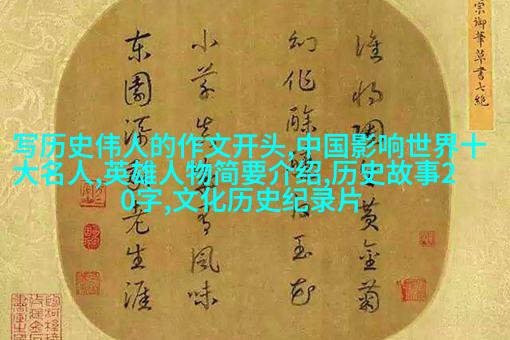 写历史伟人的作文开头,中国影响世界十
大名人,英雄人物简要介绍,历史故事2
0字,文化历史纪录片
宗御筆草書七絕
誰將陶黃金菊
幻作酴玉花
小草有風味
東園添老生涯